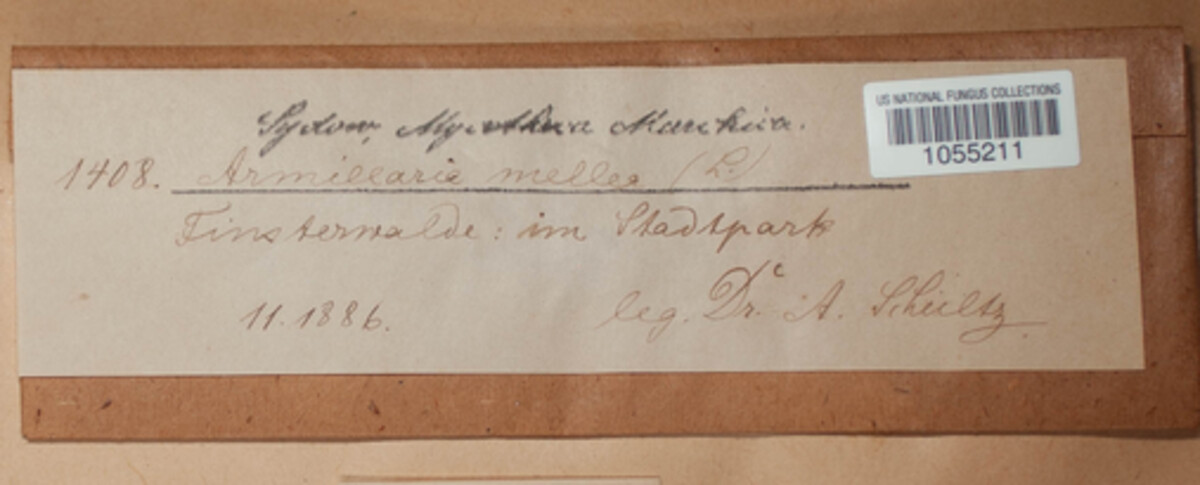 Sydow, Mycotheca Marchica.
US NATIONAL FUNGUS COLLECTIONS
1055211
1408. Armillaria mellea (L.)
Finsterwalde: im Stadtpark
11.1886.
leg. Dr. A. Schultz